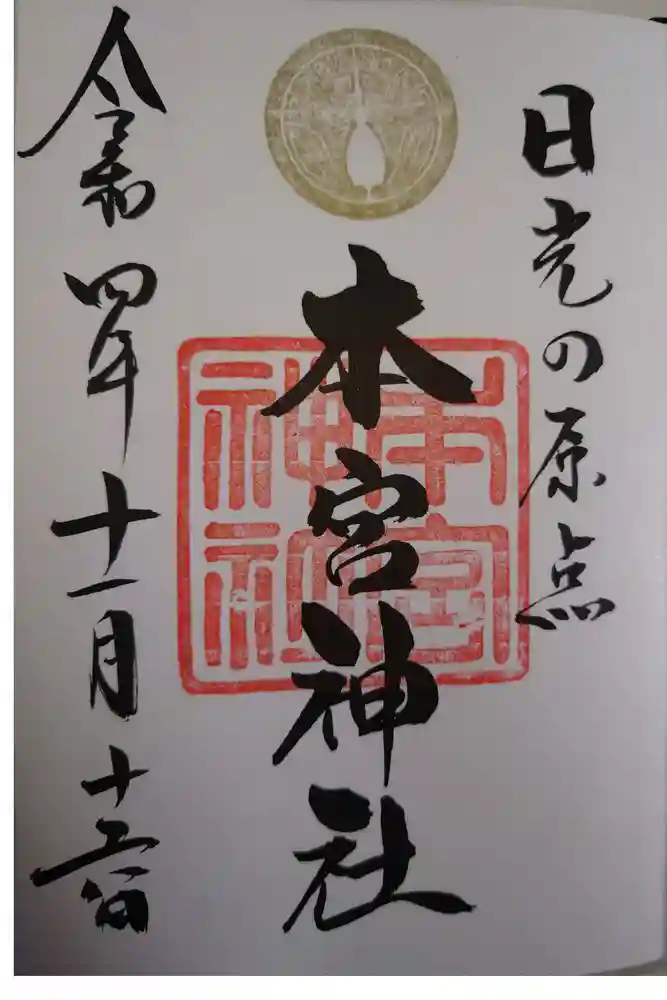 日光の原点
本宮神社
本宮
神社
令和四年十一月十五日